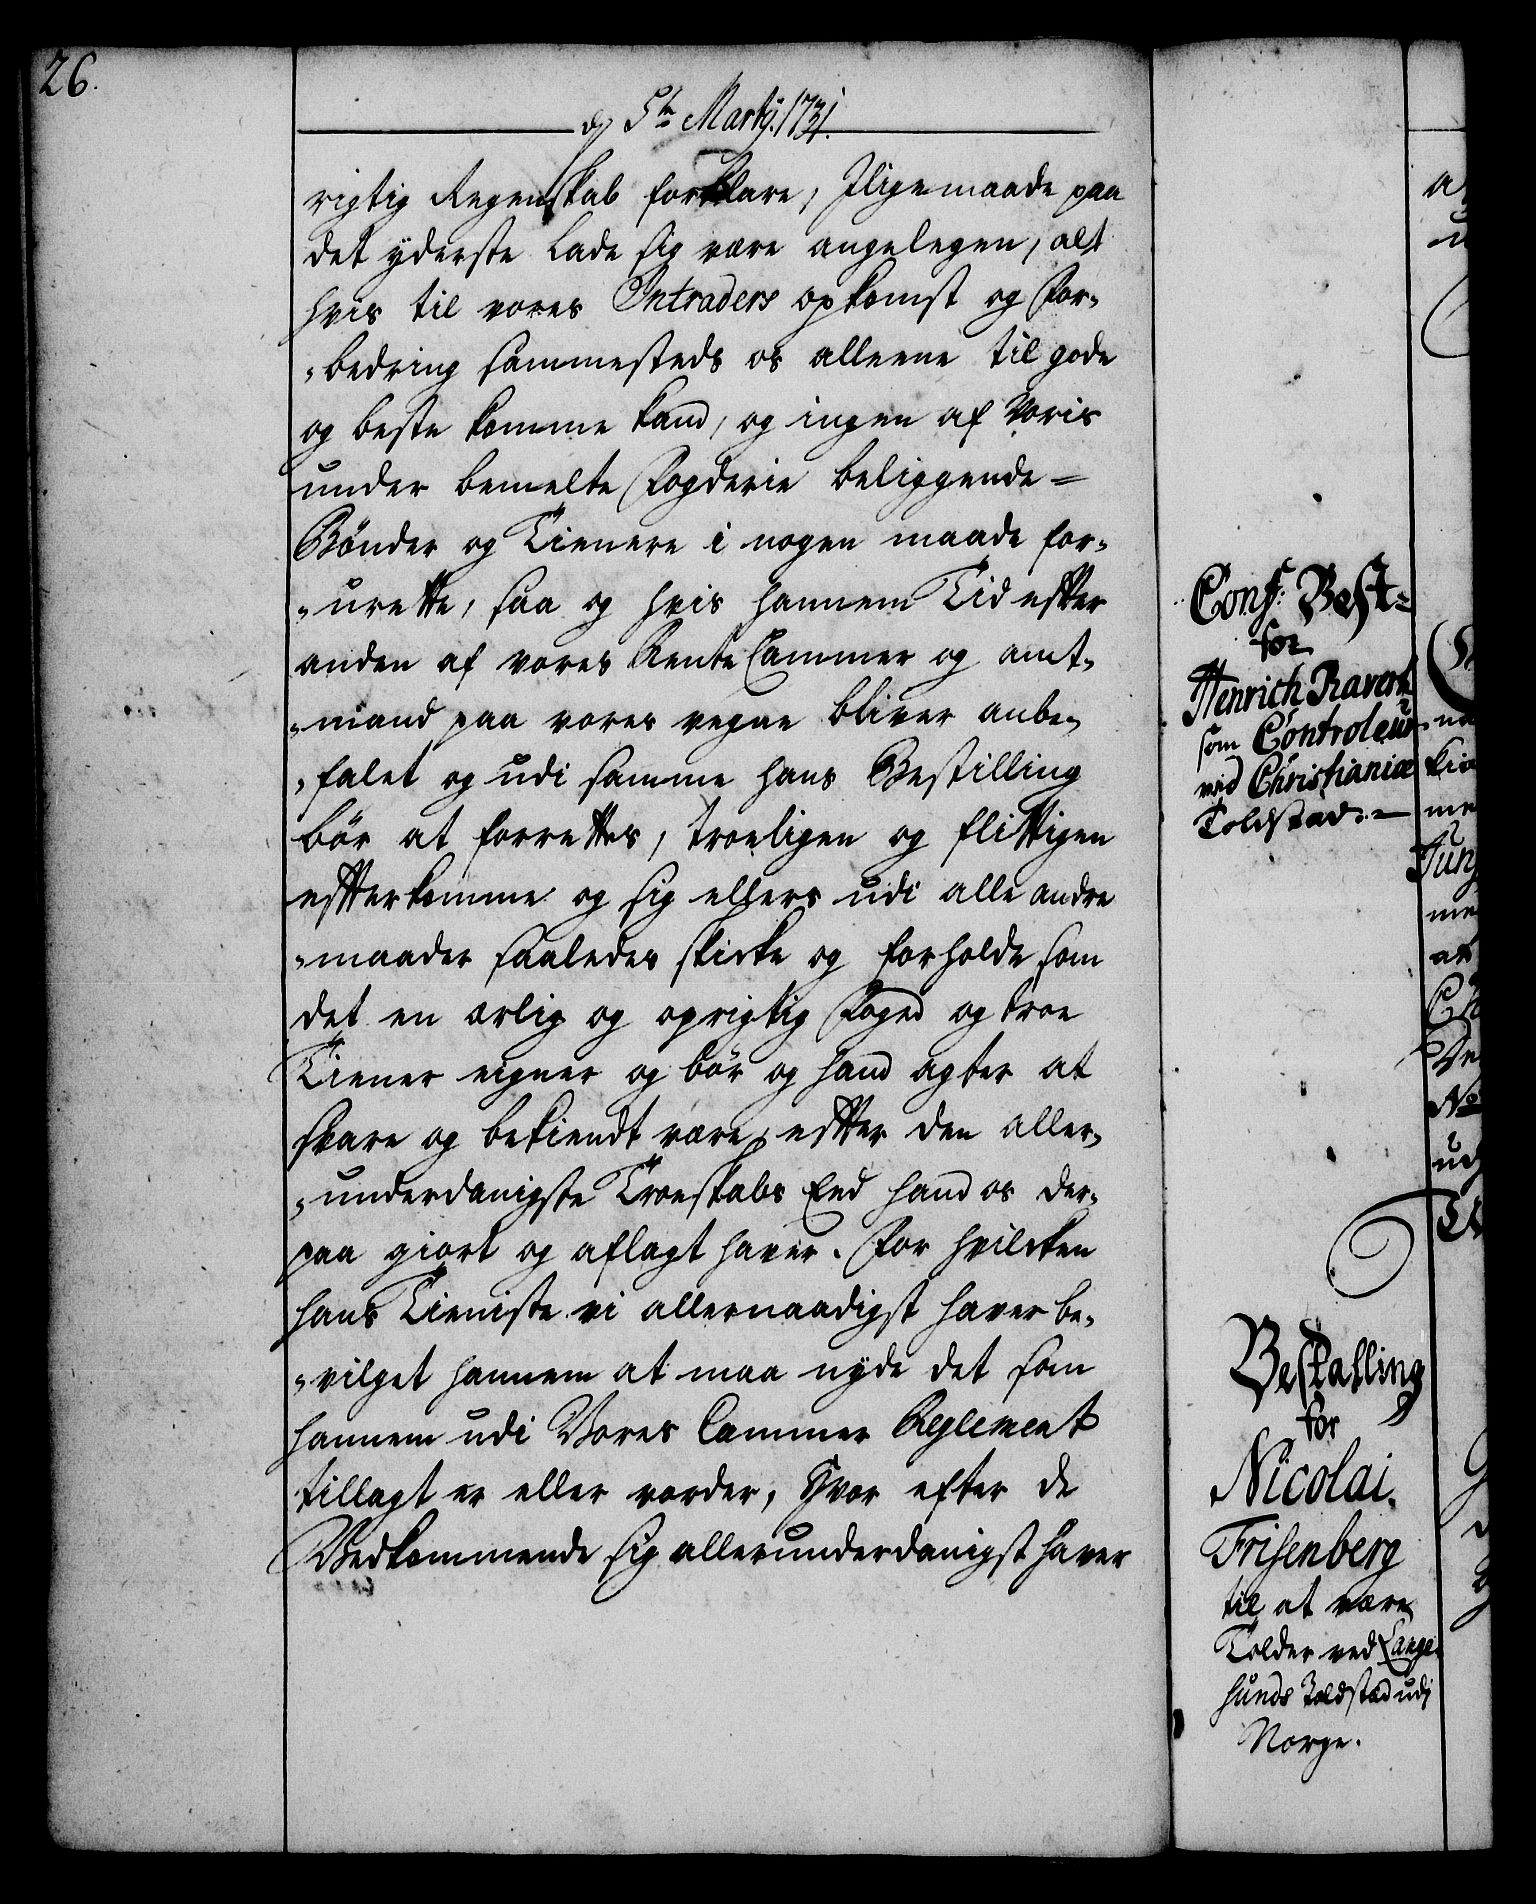 26.
d 5te Martij. 1731.
rigtig Regenskab forklare, Jligemaade paa
det yderste lade sig være angelegen, alt
hvis til vores Intraders opkomst og For-
„bedring sammesteds os alleene til gode
og beste komme kand, og ingen af Voris
under bemelte Fogderie beliggende=
Bönder og Tienere i nogen maade for-
„urette, saa og hvis hannem Tid effter
anden af vores Rente Cammer og amt-
„mand paa vores vegne bliver anbe-
„falet og udi samme hans Bestilling
bör at forrettes, troeligen og flittigen
effterkomme og sig ellers udi alle andre
„maader saaledes skicke og forholde som
det en ærlig og oprigtig Foged og troe
Tiener eigner og bör og hand agter at
svare og bekiendt være, effter den aller-
„underdanigste Troeskabs Eed hand os der-
paa giort og aflagt haver. For hvilcken
hans Tieniste vi allernaadigst haver be-
„vilget hannem at maa nyde det som
hannem udi Vores Cammer Reglement
tillagt er eller vorder, Hvor efter de
Vedkommende sig allerunderdanigst haver
Conf: Best=
for
Henrich Ravert
som Controleur
ved Christianiæ
Toldstad.
Bestalling
for
Nicolai
Frisenberg
til at være
Tolder ved Lange-
sunds Toldsted udi
Norge.